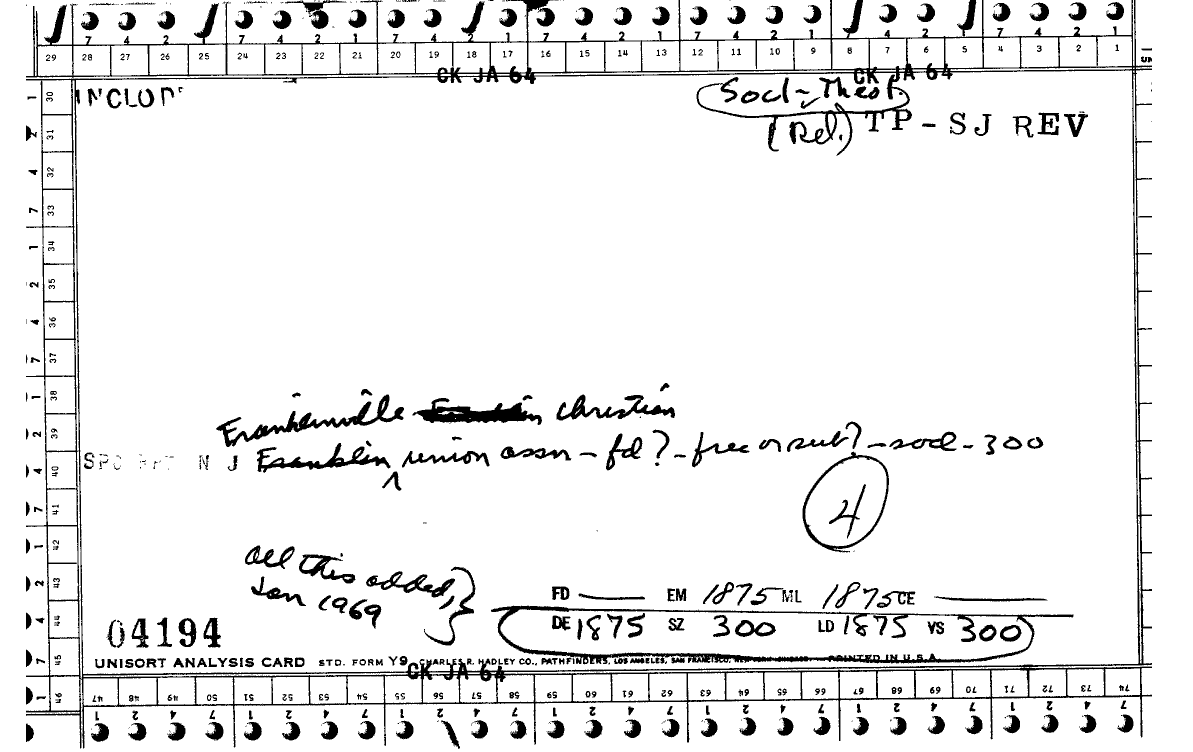 7 4 2 1 7 4 2 1 7 4 2 1 7 4 2 1 7 4 2 1 7 4 2 1
29 28 27 26 25 24 23 22 21 20 19 18 17 16 15 14 13 12 11 10 9 8 7 6 5 4 3 2 1
CK JA 64 CK JA 64
Socl-Theol.
(Rel.) TP-SJ REV
1 30
2 31
4 32
7 33
1 34
2 35
4 36
7 37
1 38
2 39
4 40
7 41
1 42
2 43
4 44
7 45
1 46
Franklinville Franklin Christian
SPC RPT N J Franklin union assn - fd? - free or sub? - socl - 300
4
all this added,
Jan 1969
FD EM 1875 ML 1875 CE
DE 1875 SZ 300 LD 1875 VS 300
04194
UNISORT ANALYSIS CARD STD. FORM Y9 CHARLES R. HADLEY CO., PATHFINDERS, LOS ANGELES, SAN FRANCISCO, PRINTED IN U.S.A.
CK JA 64
47 48 49 50 51 52 53 54 55 56 57 58 59 60 61 62 63 64 65 66 67 68 69 70 71 72 73 74
1 2 4 7 1 2 4 7 1 2 4 7 1 2 4 7 1 2 4 7 1 2 4 7 1 2 4 7